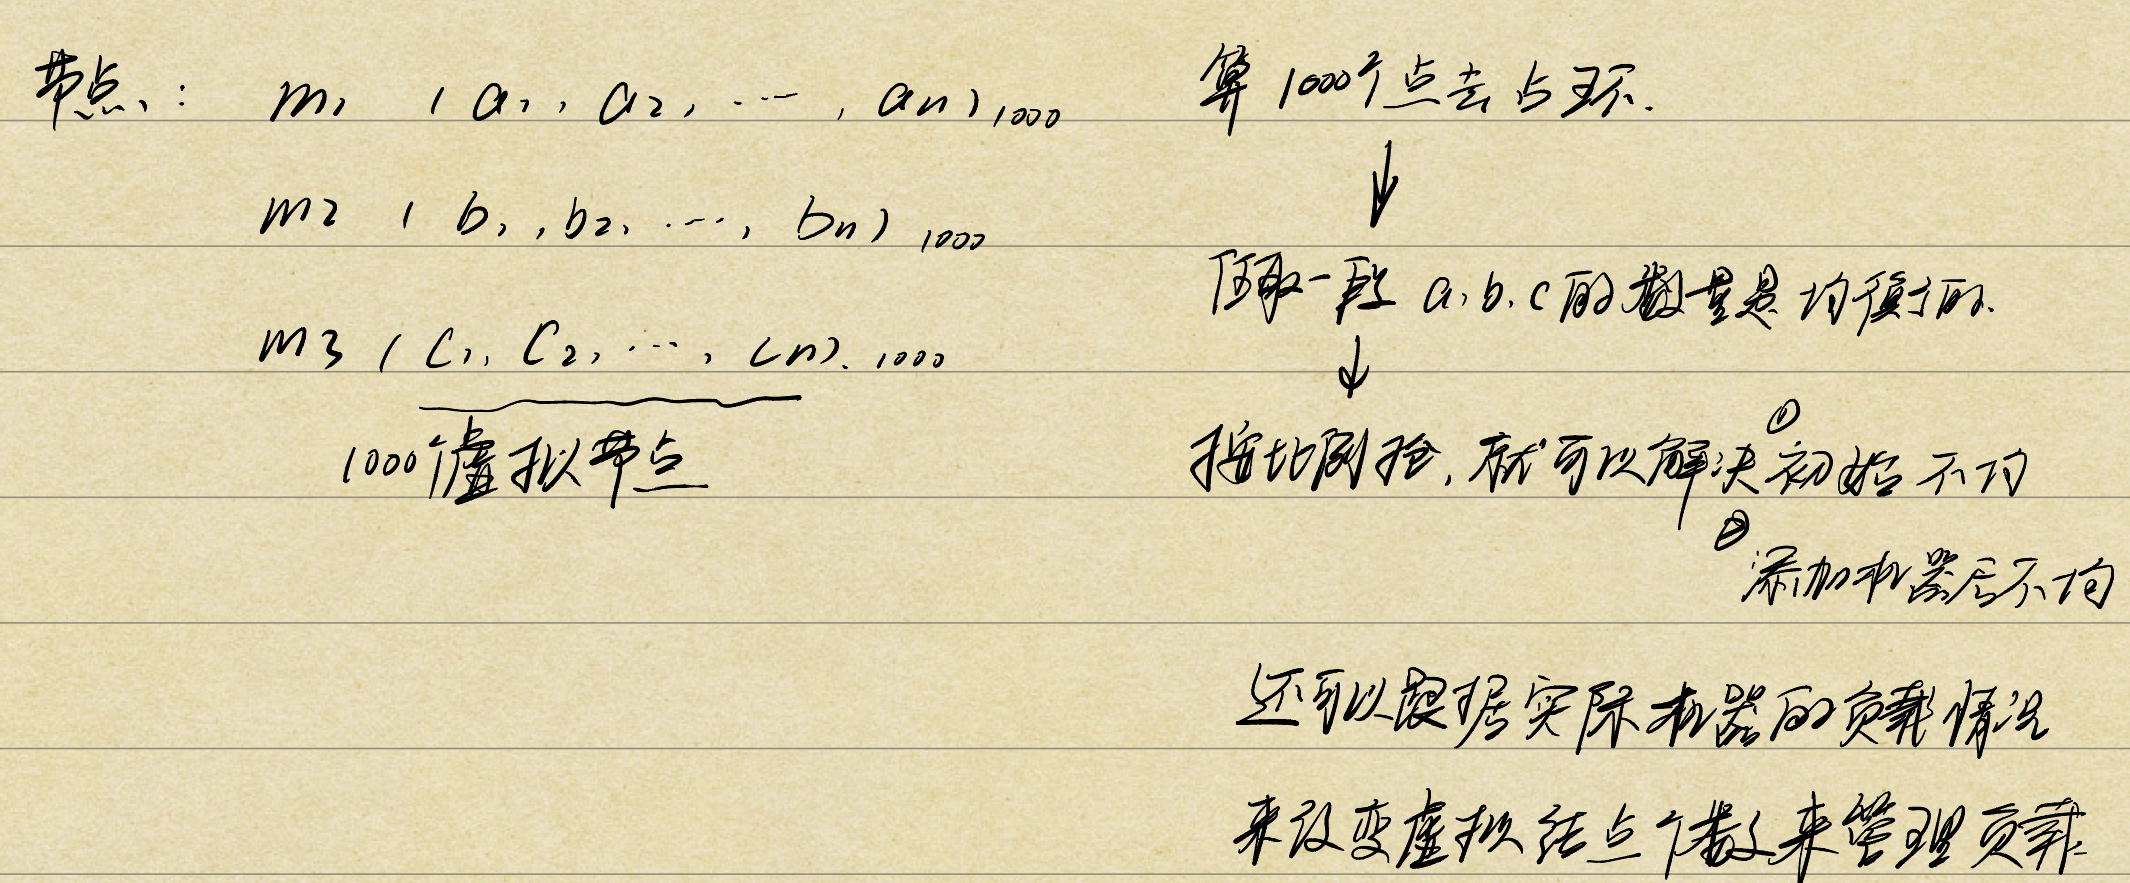 节点: m1 (a1, a2, ..., an)1000
m2 (b1, b2, ..., bn)1000
m3 (c1, c2, ..., cn). 1000
1000个虚拟节点
算1000个点去占环.
↓
任取一段 a, b, c 的数量是均衡的.
↓
按比例抢, 就可以解决 ① 初始不均
② 添加机器后不均
还可以跟据实际机器的负载情况
来改变虚拟结点个数来管理负载